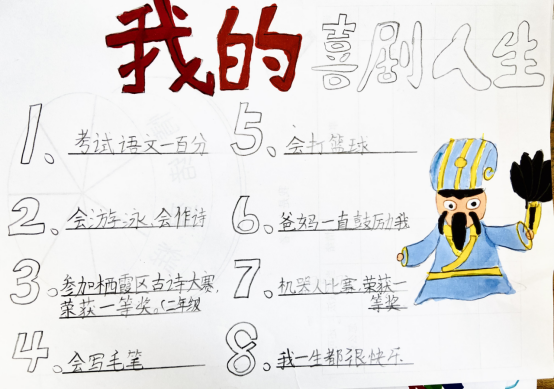 我的喜剧人生
1、考试语文一百分
2、会游泳、会作诗
3、参加栖霞区古诗大赛,
荣获一等奖。(二年级
4、会写毛笔
5、会打篮球
6、爸妈一直鼓励我
7、机器人比赛,荣获一
等奖
8、我一生都很快乐